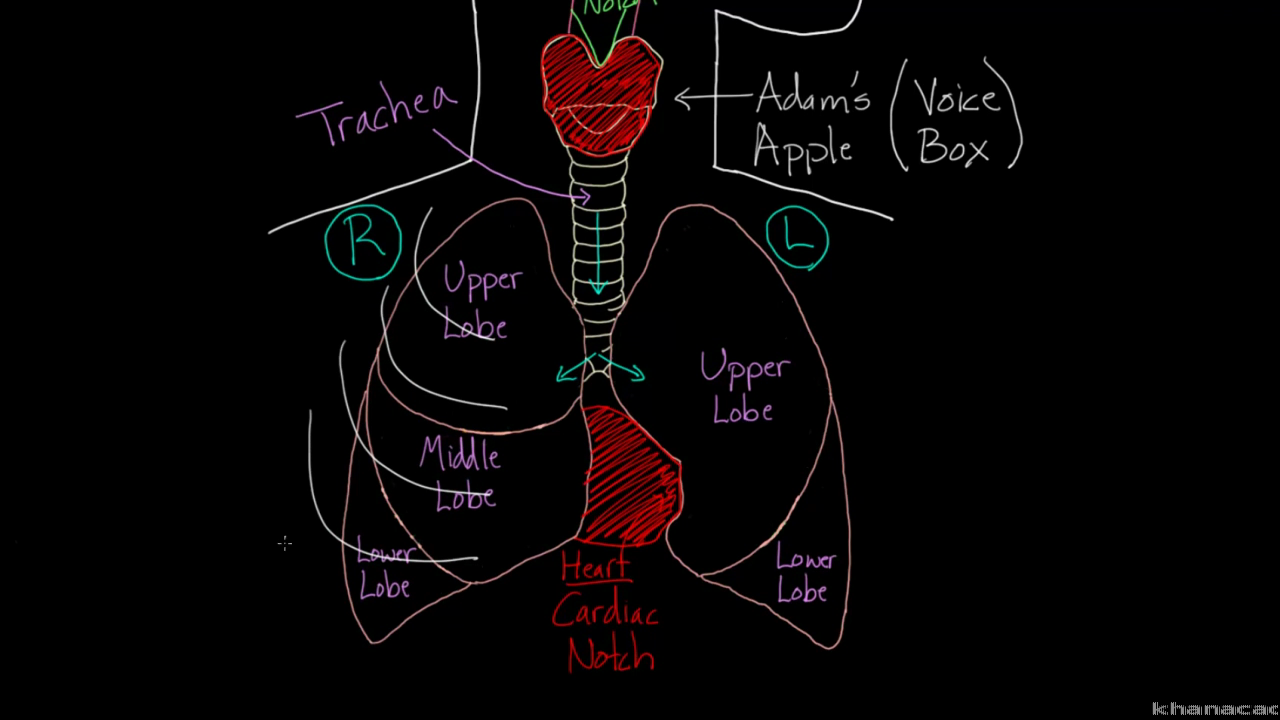 Notch
Trachea
Adam's
Apple
(Voice
Box)
R
L
Upper
Lobe
Upper
Lobe
Middle
Lobe
Lower
Lobe
Lower
Lobe
Heart
Cardiac
Notch
khanacad